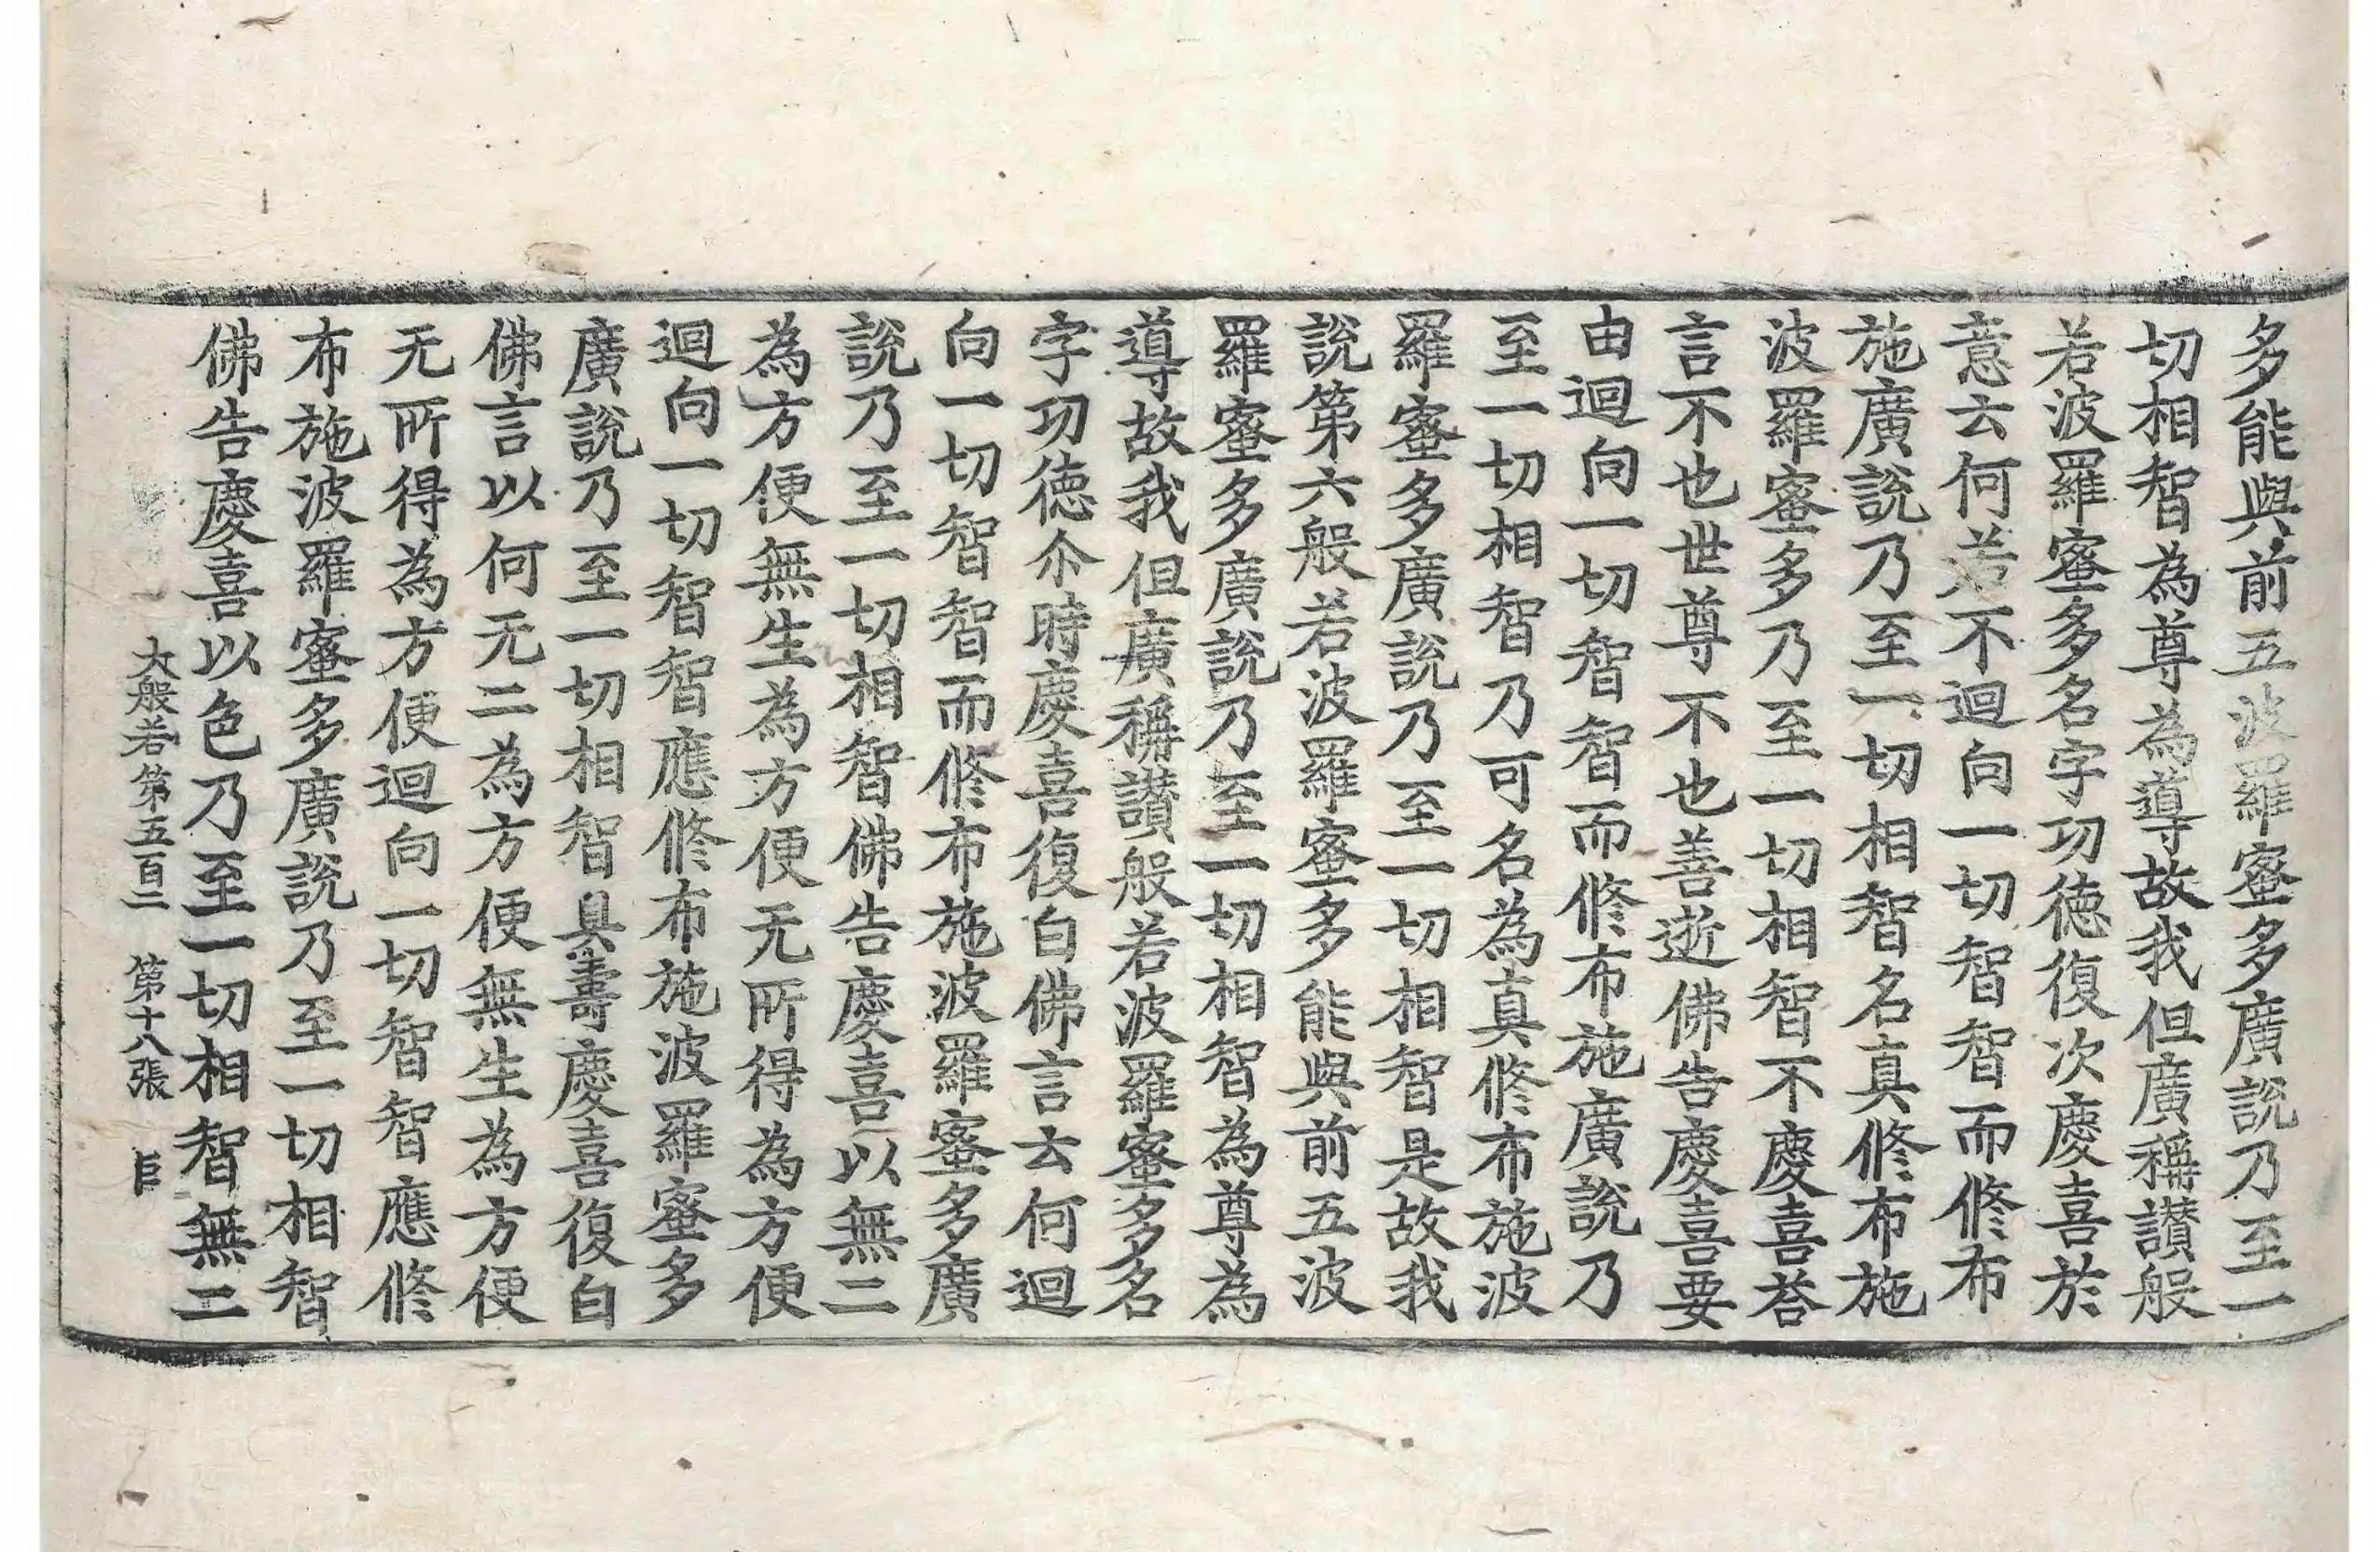 多能與前五波羅蜜多廣說乃至一
切相智為尊為導故我但廣稱讃般
若波羅蜜多名字功德復次慶喜於
意云何若不迴向一切智智而修布
施廣說乃至一切相智名真修布施
波羅蜜多乃至一切相智不慶喜荅
言不也世尊不也善逝佛告慶喜要
由迴向一切智智而修布施廣說乃
至一切相智乃可名為真修布施波
羅蜜多廣說乃至一切相智是故我
說第六般若波羅蜜多能與前五波
羅蜜多廣說乃至一切相智為尊為
導故我但廣稱讃般若波羅蜜多名
字功德尒時慶喜復白佛言云何迴
向一切智智而修布施波羅蜜多廣
說乃至一切相智佛告慶喜以無二
為方便無生為方便无所得為方便
迴向一切智智應修布施波羅蜜多
廣說乃至一切相智具壽慶喜復白
佛言以何无二為方便無生為方便
无所得為方便迴向一切智智應修
布施波羅蜜多廣說乃至一切相智
佛告慶喜以色乃至一切相智無二
大般若第五百二 第十八張 巨